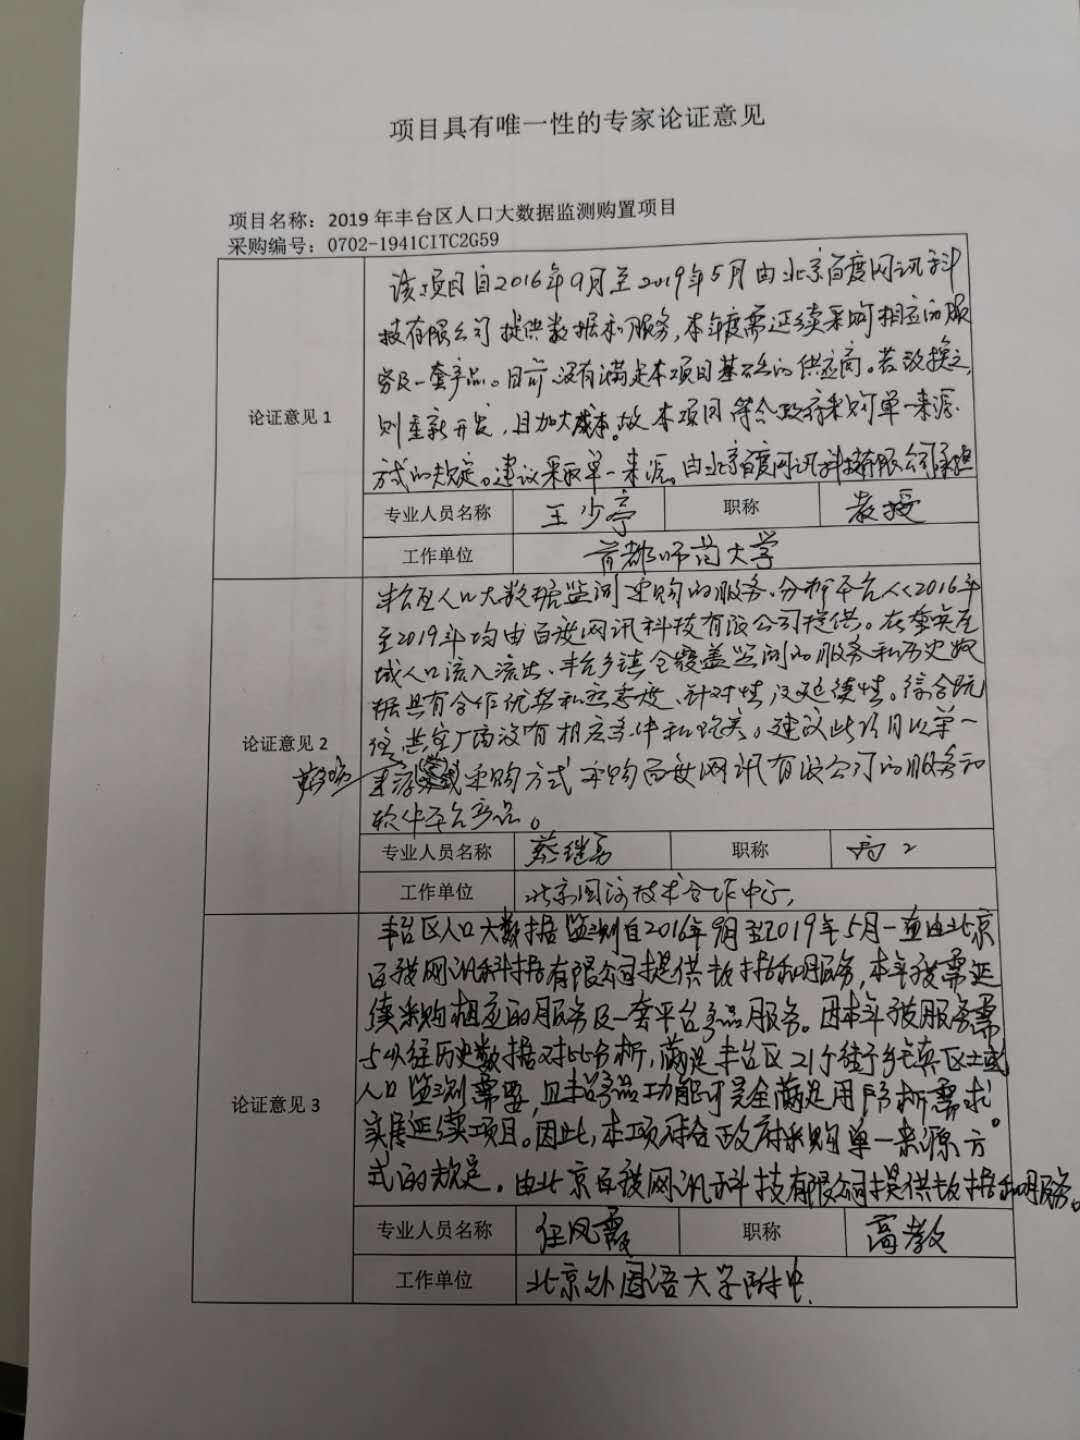 项目具有唯一性的专家论证意见
项目名称：2019年丰台区人口大数据监测购置项目
采购编号：0702-1941CITC2G59
论证意见1
该项目自2016年9月至2019年5月由北京百度网讯科
技有限公司提供数据和服务，本年度需延续采购相应的服
务及一套产品。目前没有满足本项目基础的供应商。若改换之，
则重新开发，且加大成本。故本项目符合政府采购单一来源
方式的规定。建议采取单一来源。由北京百度网讯科技有限公司承担
专业人员名称 王少亭 职称 教授
工作单位 首都师范大学
论证意见2
丰台区人口大数据监测采购的服务、分析平台从2016年
至2019年均由百度网讯科技有限公司提供。在重点区
域人口流入流出、丰台乡镇全覆盖监测的服务和历史数
据具有合作优势和完善度、针对性及延续性。综合既
往 其它厂商没有相应条件和 。建议此项目以单一
来源采购方式采购百度网讯有限公司的服务和
软件平台产品。
专业人员名称 蔡继勇 职称 高工
工作单位 北京国际技术合作中心
论证意见3
丰台区人口大数据监测自2016年9月至2019年5月一直由北京
百度网讯科技有限公司提供数据和服务，本年度需延
续采购相应的服务及一套平台产品服务。因本年度服务需
与以往历史数据对比分析，满足丰台区21个街乡镇区域
人口监测需要，且其产品功能可完全满足用户分析需求，
实属延续项目。因此，本项符合政府采购单一来源方
式的规定，由北京百度网讯科技有限公司提供数据和服务。
专业人员名称 任凤霞 职称 高教
工作单位 北京外国语大学附中